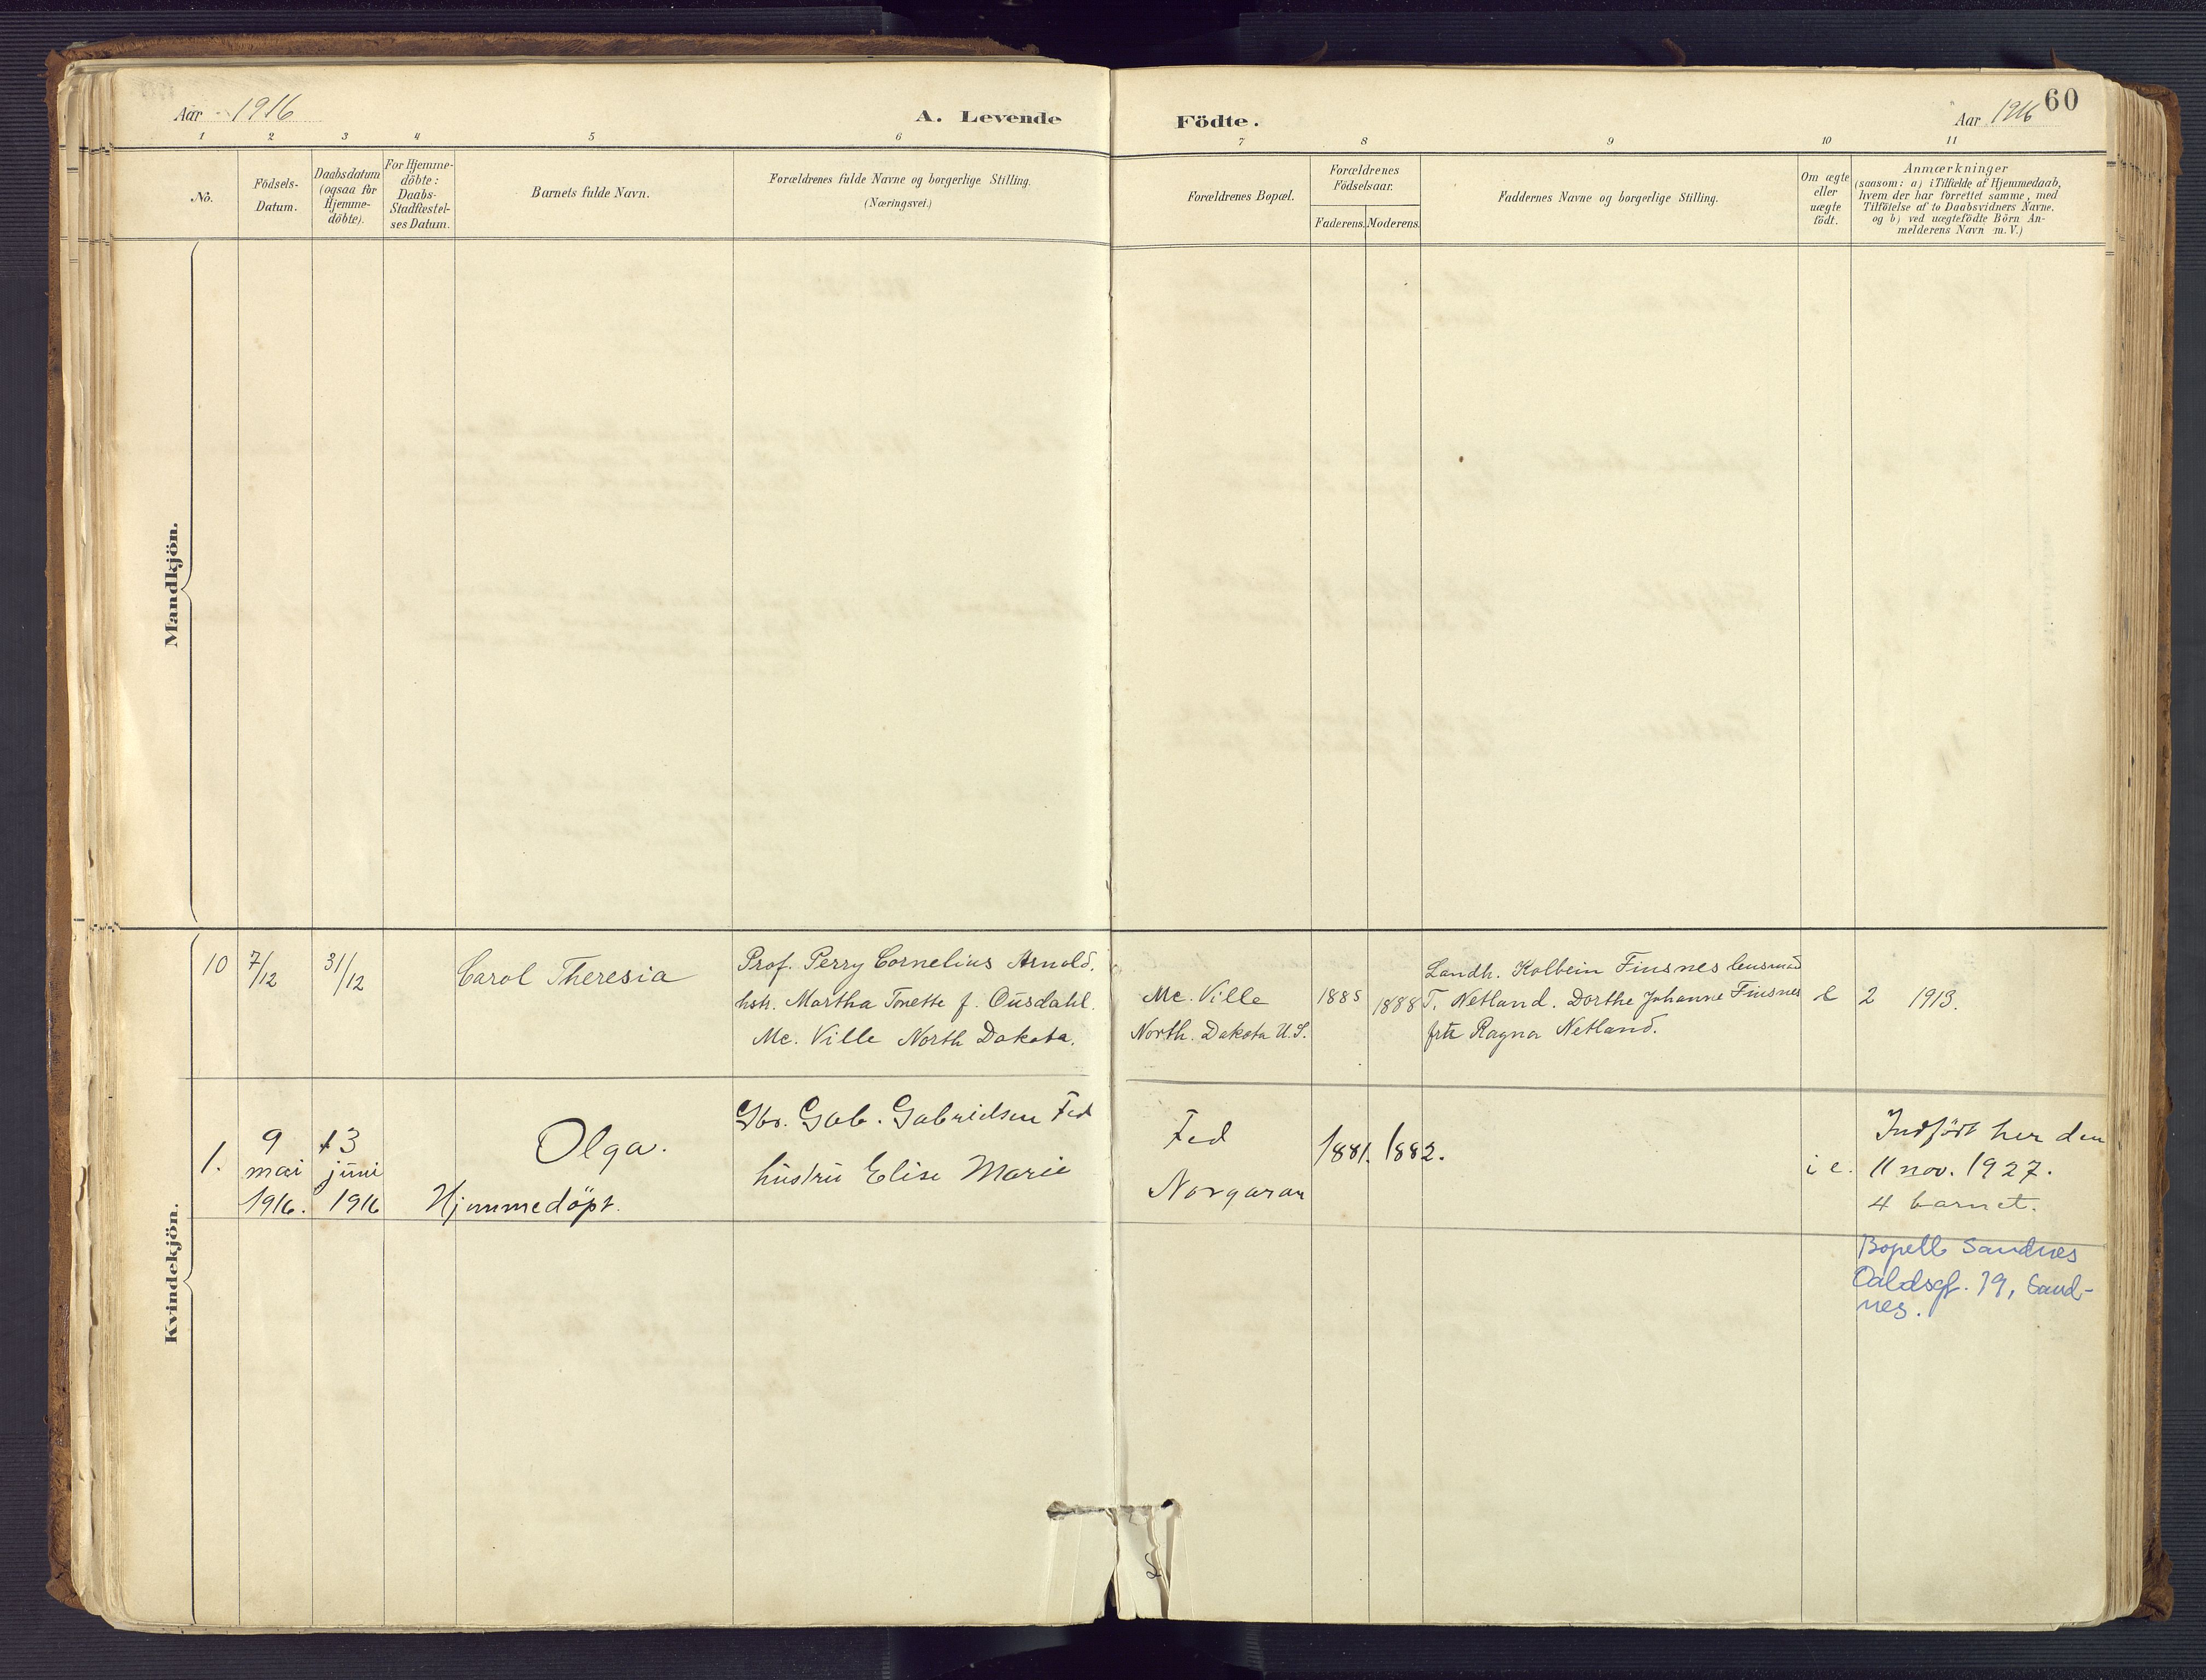 60
Aar 1916
A. Levende
Födte.
Aar 1916
1 2 3 4 5 6 7 8 9 10 11
No.
Födsels-
Datum.
Daabsdatum
(ogsaa for
Hjemme-
döbte).
For Hjemme-
döbte:
Daabs-
Stadfæstel-
ses Datum.
Barnets fulde Navn.
Forældrenes fulde Navne og borgerlige Stilling.
(Næringsvei.)
Forældrenes Bopæl.
Forældrenes
Födselsaar.
Faderens. Moderens.
Faddernes Navne og borgerlige Stilling.
Om ægte
eller
uægte
födt.
Anmærkninger
(saasom: a) i Tilfælde af Hjemmedaab,
hvem der har forrettet samme, med
Tilföielse af to Daabsvidners Navne,
og b) ved uægtefödte Börn An-
melderens Navn m. V.)
Mandkjön.
Kvindekjön.
10
7/12
31/12
Carol Theresia
Prof. Perry Cornelius Arnold.
hstr. Martha Tonette f. Ousdahl.
Mc. Ville North Dakota.
Mc. Ville
North. Dakota U.S.
1885
1888
Landh. Kolbein Finsnes lensmad
T. Netland. Dorthe Johanne Finsnes
frk Ragna Netland.
e
2 1913.
1.
9
mai
1916.
13
juni
1916
Olga.
Hjemmedöpt.
Gbr. Gab. Gabrielsen Fed
hustru Elise Marie
Fed
1881.
1882.
i e.
Indfört her den
11 nov. 1927.
4 barnet.
Sandnes
19, Sand-
nes.